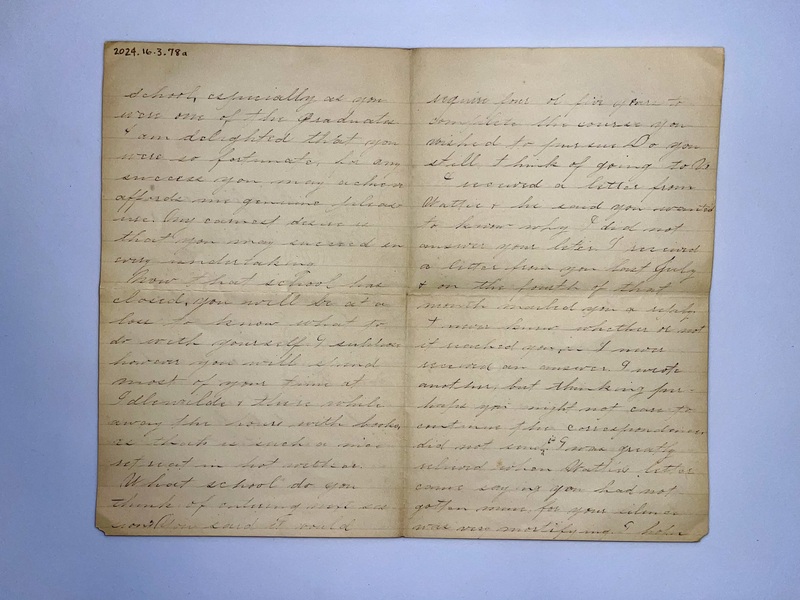 2024.16.3.78a
school, especially as you
were one of the Graduates
I am delighted that you
were so fortunate, for any
success you may achieve
affords me genuine pleas
ure. My earnest desire is
that you may succeed in
every undertaking.
Now that school has
closed, you will be at a
loss to know what to
do with yourself I suppose
however you will spend
most of your time at
Idlewilde & there while
away the hours with books,
as think is such a nice
retreat in hot wether.
What school do you
think of entering next ses
sion? You said it would
require four or five years to
complete the course you
wished to pursue Do you
still think of going to
I received a letter from
Hattie & he said you wanted
to know why I did not
answer your leter I received
a letter from you last July
& on the fourth of that
month mailed you a reply
I never knew whether or not
it reached you, as I never
received an answer I wrote
another, but thinking per-
haps you might not care to
continue the correspondence
did not send it I was greatly
relieved when Hattie's letter
came saying you had not
gotten mine, for your silence
was very mortifying I hope